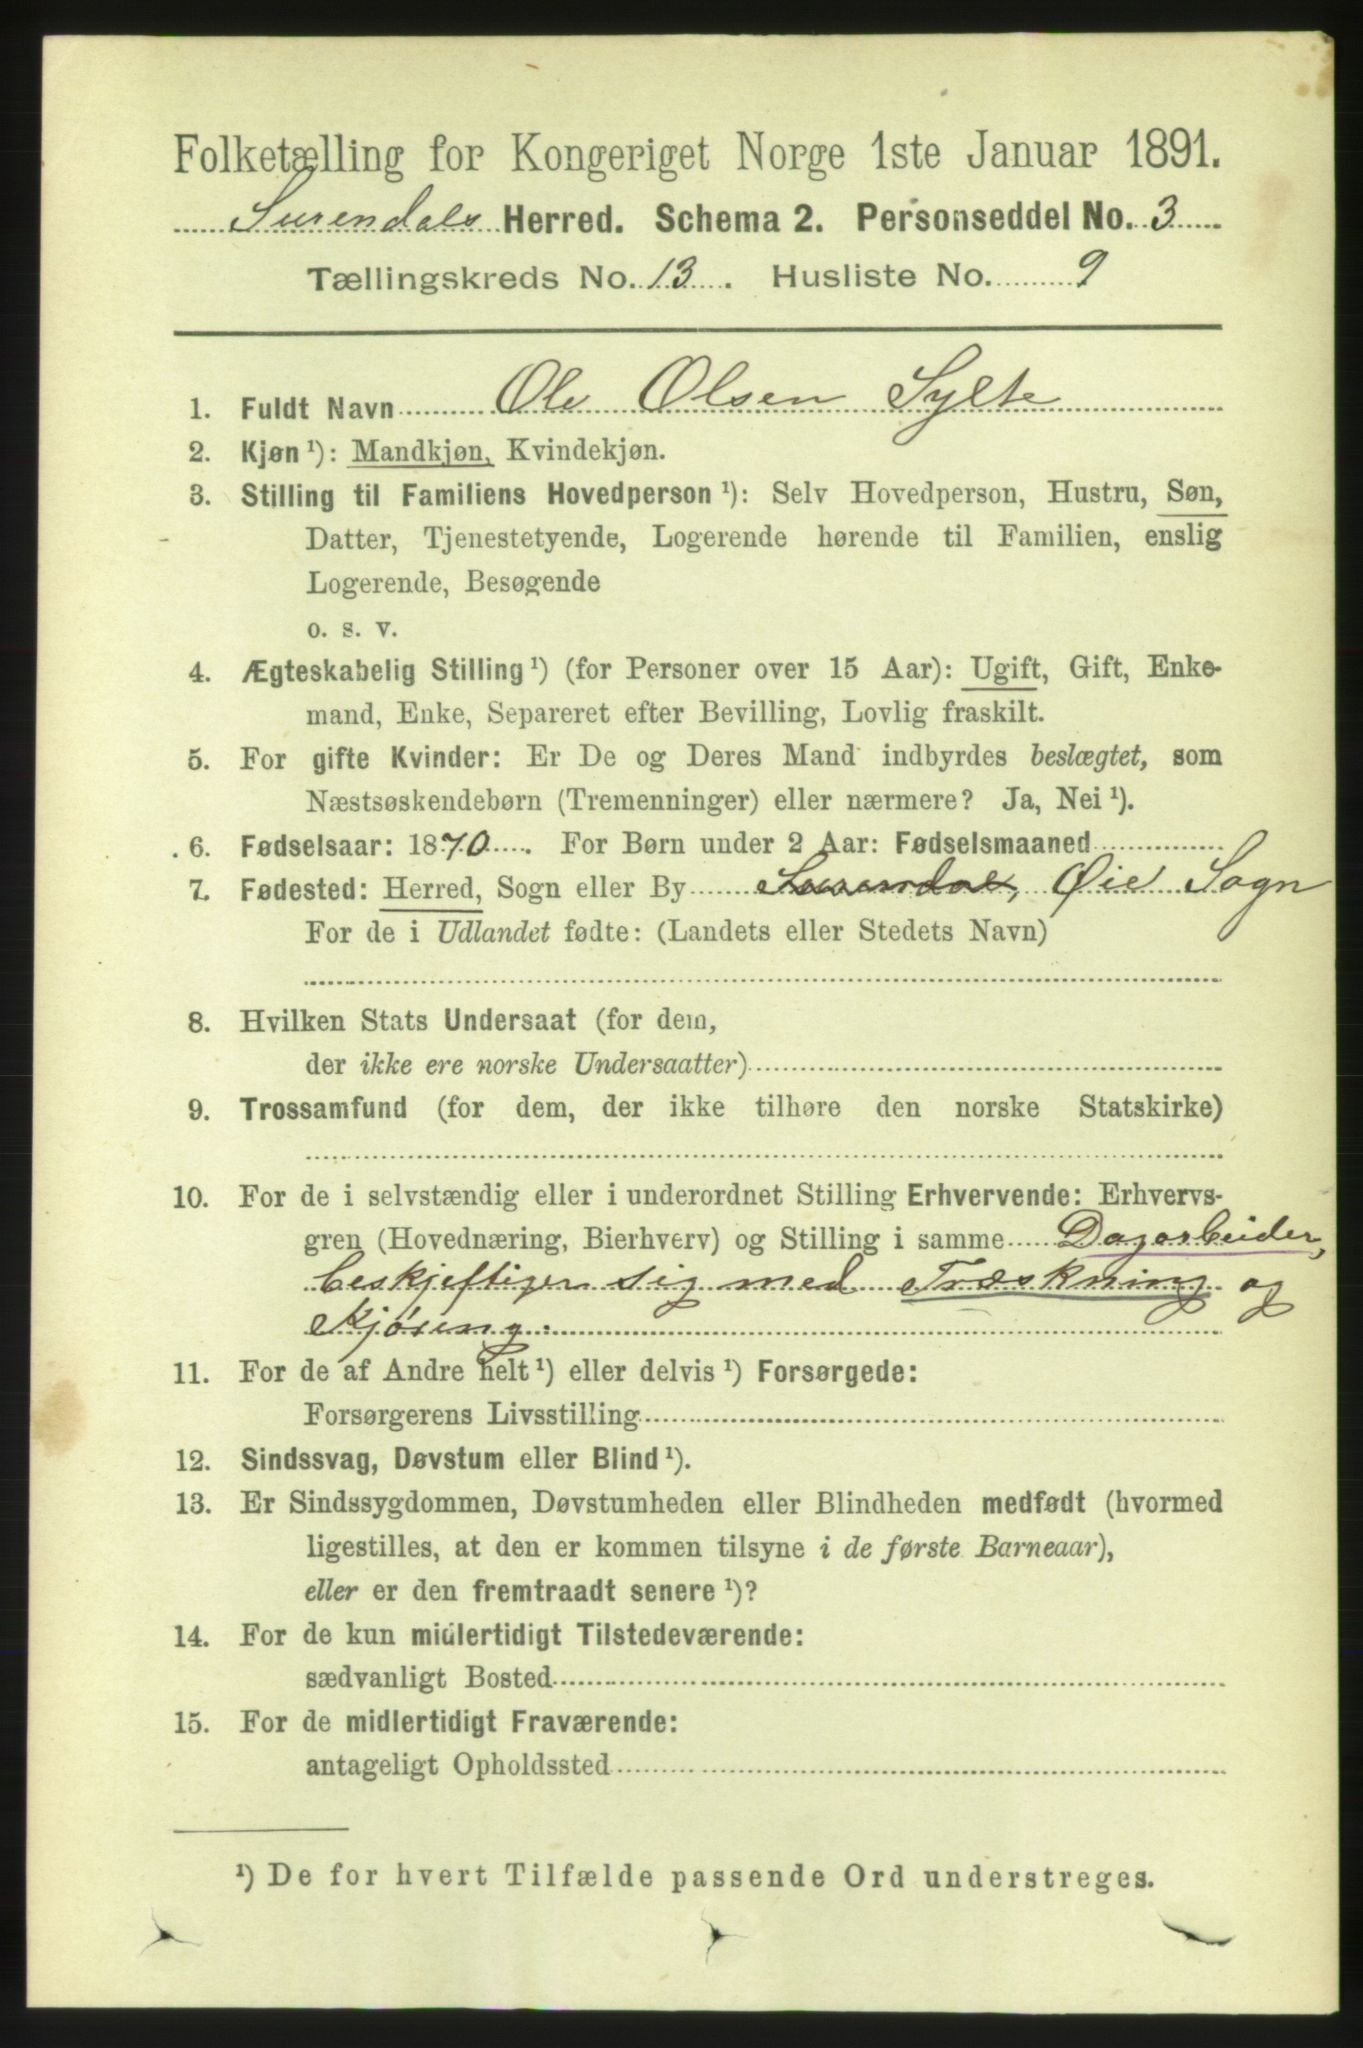 Folketælling for Kongeriget Norge 1ste Januar 1891.
Surendals Herred. Schema 2. Personseddel No. 3
Tællingskreds No. 13. Husliste No. 9
1. Fuldt Navn Ole Olsen Sylte
2. Kjøn ¹): Mandkjøn, Kvindekjøn.
3. Stilling til Familiens Hovedperson ¹): Selv Hovedperson, Hustru, Søn,
Datter, Tjenestetyende, Logerende hørende til Familien, enslig
Logerende, Besøgende
o. s. v.
4. Ægteskabelig Stilling ¹) (for Personer over 15 Aar): Ugift, Gift, Enke-
mand, Enke, Separeret efter Bevilling, Lovlig fraskilt.
5. For gifte Kvinder: Er De og Deres Mand indbyrdes beslægtet, som
Næstsøskendebørn (Tremenninger) eller nærmere? Ja, Nei ¹).
6. Fødselsaar: 1870. For Børn under 2 Aar: Fødselsmaaned
7. Fødested: Herred, Sogn eller By Surendal, Øie Sogn
For de i Udlandet fødte: (Landets eller Stedets Navn)
8. Hvilken Stats Undersaat (for dem,
der ikke ere norske Undersaatter)
9. Trossamfund (for dem, der ikke tilhøre den norske Statskirke)
10. For de i selvstændig eller i underordnet Stilling Erhvervende: Erhvervs-
gren (Hovednæring, Bierhverv) og Stilling i samme Dagarbeider,
beskjeftiger sig med Træskning og
Kjøring.
11. For de af Andre helt ¹) eller delvis ¹) Forsørgede:
Forsørgerens Livsstilling
12. Sindssvag, Døvstum eller Blind ¹).
13. Er Sindssygdommen, Døvstumheden eller Blindheden medfødt (hvormed
ligestilles, at den er kommen tilsyne i de første Barneaar),
eller er den fremtraadt senere ¹)?
14. For de kun midlertidigt Tilstedeværende:
sædvanligt Bosted
15. For de midlertidigt Fraværende:
antageligt Opholdssted
¹) De for hvert Tilfælde passende Ord understreges.